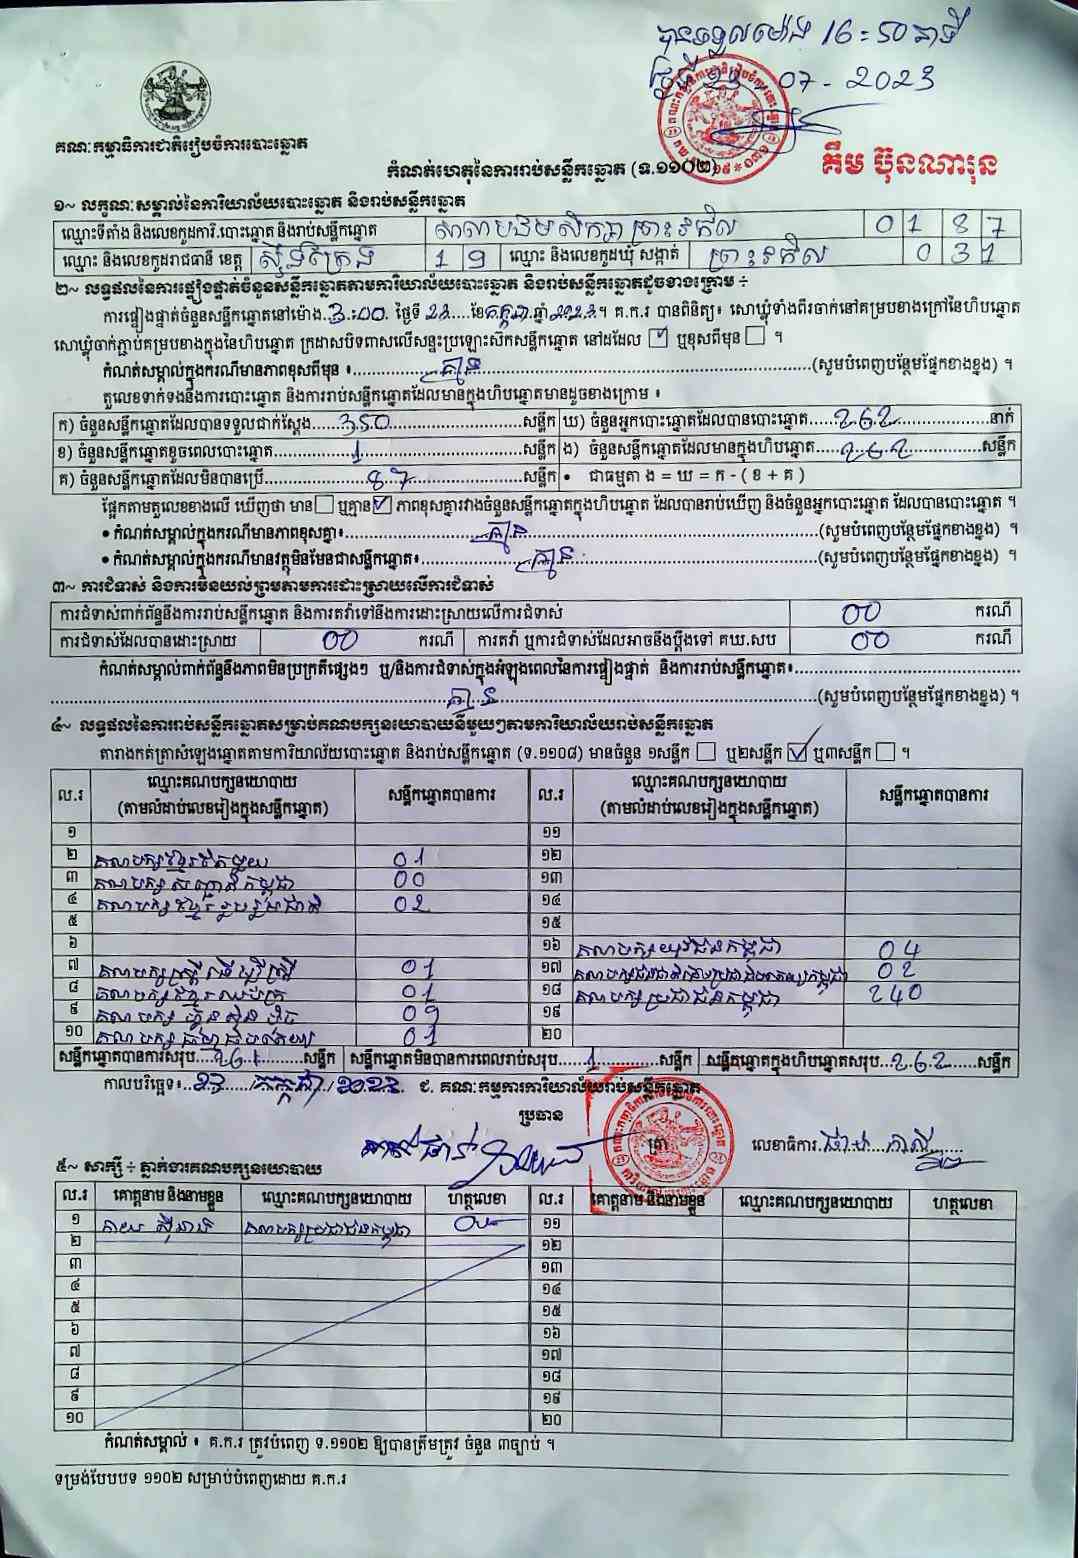 បានទទួលម៉ោង 16:50 នាទី
ថ្ងៃទី 23 - 07 - 2023
គណៈកម្មាធិការជាតិរៀបចំការបោះឆ្នោត
កំណត់ហេតុនៃការរាប់សន្លឹកឆ្នោត (ទ.១១០២)
គឹម ប៊ុនណារុន
១~ លក្ខណៈសម្គាល់នៃការិយាល័យបោះឆ្នោត និងរាប់សន្លឹកឆ្នោត
ឈ្មោះទីតាំង និងលេខកូដការិ.បោះឆ្នោត និងរាប់សន្លឹកឆ្នោត សាលាបឋមសិក្សា ព្រះរំកិល 0 1 8 7
ឈ្មោះ និងលេខកូដរាជធានី ខេត្ត ស្ទឹងត្រែង 1 9 ឈ្មោះ និងលេខកូដឃុំ សង្កាត់ ព្រះរំកិល 0 3 1
២~ លទ្ធផលនៃការផ្ទៀងផ្ទាត់ចំនួនសន្លឹកឆ្នោតតាមការិយាល័យបោះឆ្នោត និងរាប់សន្លឹកឆ្នោតដូចខាងក្រោម ÷
ការផ្ទៀងផ្ទាត់ចំនួនសន្លឹកឆ្នោតនៅម៉ោង 3:00 ថ្ងៃទី 23 ខែ កក្កដា ឆ្នាំ 2023 ។ គ.ក.រ បានពិនិត្យ៖ សោឃ្លុំទាំងពីរចាក់នៅគម្របខាងក្រៅនៃហិបឆ្នោត
សោឃ្លុំចាក់ភ្ជាប់គម្របខាងក្នុងនៃហិបឆ្នោត ក្រដាសបិទពាសលើសន្ទះប្រឡោះស៊កសន្លឹកឆ្នោត នៅដដែល ☑ ឬខុសពីមុន ☐ ។
កំណត់សម្គាល់ក្នុងករណីមានភាពខុសពីមុន ៖ គ្មាន (សូមបំពេញបន្ថែមផ្នែកខាងខ្នង) ។
តួលេខទាក់ទងនឹងការបោះឆ្នោត និងការរាប់សន្លឹកឆ្នោតដែលមានក្នុងហិបឆ្នោតមានដូចខាងក្រោម ៖
ក) ចំនួនសន្លឹកឆ្នោតដែលបានទទួលជាក់ស្តែង 350 សន្លឹក ឃ) ចំនួនអ្នកបោះឆ្នោតដែលបានបោះឆ្នោត 262 នាក់
ខ) ចំនួនសន្លឹកឆ្នោតខូចពេលបោះឆ្នោត 1 សន្លឹក ង) ចំនួនសន្លឹកឆ្នោតដែលមានក្នុងហិបឆ្នោត 262 សន្លឹក
គ) ចំនួនសន្លឹកឆ្នោតដែលមិនបានប្រើ 87 សន្លឹក • ជាធម្មតា ង = ឃ = ក - ( ខ + គ )
ផ្អែកតាមតួលេខខាងលើ ឃើញថា មាន ☐ ឬគ្មាន ☑ ភាពខុសគ្នារវាងចំនួនសន្លឹកឆ្នោតក្នុងហិបឆ្នោត ដែលបានរាប់ឃើញ និងចំនួនអ្នកបោះឆ្នោត ដែលបានបោះឆ្នោត ។
• កំណត់សម្គាល់ក្នុងករណីមានភាពខុសគ្នា៖ គ្មាន (សូមបំពេញបន្ថែមផ្នែកខាងខ្នង) ។
• កំណត់សម្គាល់ក្នុងករណីមានវត្ថុមិនមែនជាសន្លឹកឆ្នោត៖ គ្មាន (សូមបំពេញបន្ថែមផ្នែកខាងខ្នង) ។
៣~ ការជំទាស់ និងការមិនយល់ព្រមតាមការដោះស្រាយលើការជំទាស់
ការជំទាស់ពាក់ព័ន្ធនឹងការរាប់សន្លឹកឆ្នោត និងការតវ៉ាទៅនឹងការដោះស្រាយលើការជំទាស់ 00 ករណី
ការជំទាស់ដែលបានដោះស្រាយ 00 ករណី ការតវ៉ា ឬការជំទាស់ដែលអាចនឹងប្តឹងទៅ គឃ.សប 00 ករណី
កំណត់សម្គាល់ពាក់ព័ន្ធនឹងភាពមិនប្រក្រតីផ្សេងៗ ឬ/និងការជំទាស់ក្នុងអំឡុងពេលនៃការផ្ទៀងផ្ទាត់ និងការរាប់សន្លឹកឆ្នោត៖
គ្មាន (សូមបំពេញបន្ថែមផ្នែកខាងខ្នង) ។
៤~ លទ្ធផលនៃការរាប់សន្លឹកឆ្នោតសម្រាប់គណបក្សនយោបាយនីមួយៗតាមការិយាល័យរាប់សន្លឹកឆ្នោត
តារាងកត់ត្រាសំឡេងឆ្នោតតាមការិយាល័យបោះឆ្នោត និងរាប់សន្លឹកឆ្នោត (ទ.១១០៨) មានចំនួន ១សន្លឹក ☐ ឬ២សន្លឹក ☑ ឬ៣សន្លឹក ☐ ។
ល.រ ឈ្មោះគណបក្សនយោបាយ (តាមលំដាប់លេខរៀងក្នុងសន្លឹកឆ្នោត) សន្លឹកឆ្នោតបានការ ល.រ ឈ្មោះគណបក្សនយោបាយ (តាមលំដាប់លេខរៀងក្នុងសន្លឹកឆ្នោត) សន្លឹកឆ្នោតបានការ
១ ១១
២ គណបក្សខ្មែរតែមួយ 01 ១២
៣ គណបក្សសញ្ជាតិកម្ពុជា 00 ១៣
៤ គណបក្សខ្មែររួបរួមជាតិ 02 ១៤
៥ ១៥
៦ ១៦ គណបក្សយុវជនកម្ពុជា 04
៧ គណបក្សស្ត្រីដើម្បីស្ត្រី 01 ១៧ 02
៨ គណបក្សខ្មែរឈប់ក្រ 01 ១៨ គណបក្សប្រជាជនកម្ពុជា 240
៩ គណបក្សហ្វ៊ុនស៊ិនប៉ិច 09 ១៩
១០ គណបក្សធម្មាធិបតេយ្យ 01 ២០
សន្លឹកឆ្នោតបានការសរុប 261 សន្លឹក សន្លឹកឆ្នោតមិនបានការពេលរាប់សរុប 1 សន្លឹក សន្លឹកឆ្នោតក្នុងហិបឆ្នោតសរុប 262 សន្លឹក
កាលបរិច្ឆេទ៖ 23 / កក្កដា / 2023 ជ. គណៈកម្មការការិយាល័យរាប់សន្លឹកឆ្នោត
ប្រធាន
ត្រា លេខាធិការ
៥~ សាក្សី ÷ ភ្នាក់ងារគណបក្សនយោបាយ
ល.រ គោត្តនាម និងនាមខ្លួន ឈ្មោះគណបក្សនយោបាយ ហត្ថលេខា ល.រ គោត្តនាម និងនាមខ្លួន ឈ្មោះគណបក្សនយោបាយ ហត្ថលេខា
១ គណបក្សប្រជាជនកម្ពុជា ១១
២ ១២
៣ ១៣
៤ ១៤
៥ ១៥
៦ ១៦
៧ ១៧
៨ ១៨
៩ ១៩
១០ ២០
កំណត់សម្គាល់ ៖ គ.ក.រ ត្រូវបំពេញ ទ.១១០២ ឱ្យបានត្រឹមត្រូវ ចំនួន ៣ច្បាប់ ។
ទម្រង់បែបបទ ១១០២ សម្រាប់បំពេញដោយ គ.ក.រ